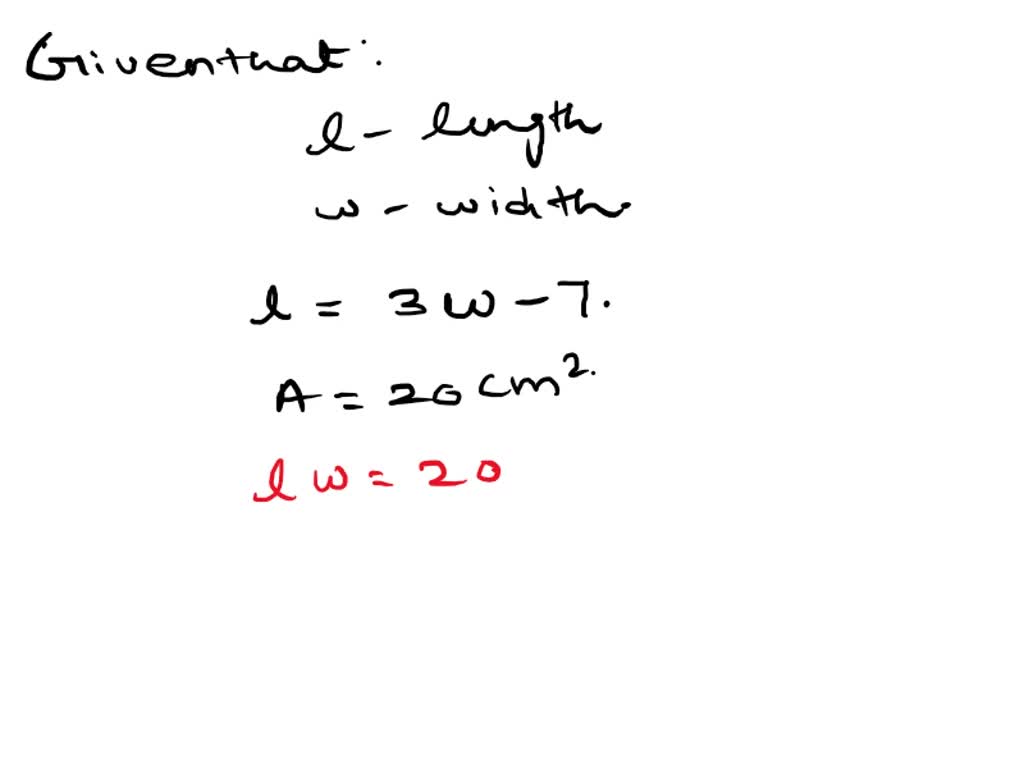 Given that :
l - length
w - width.
l = 3w - 7.
A = 20 cm².
lw = 20